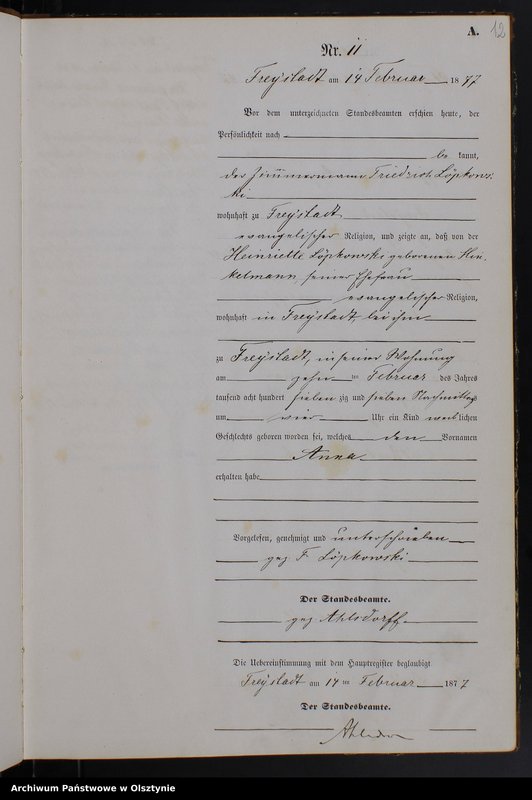 A. 12
Nr. 11
Freystadt am 14 Februar 1877
Vor dem unterzeichneten Standesbeamten erschien heute, der
Persönlichkeit nach
be kannt,
der Zimmermann Friedrich Löpkows-
ki
wohnhaft zu Freystadt
evangelischer Religion, und zeigte an, daß von der
Henriette Löpkowski geborenen Hin-
kelmann, seiner Ehefrau
evangelischer Religion,
wohnhaft in Freystadt bei ihm
zu Freystadt, in seiner Wohnung
am zehn ten Februar des Jahres
tausend acht hundert sieben zig und sieben Nachmittags
um vier Uhr ein Kind weib lichen
Geschlechts geboren worden sei, welches den Vornamen
Anna
erhalten habe
Vorgelesen, genehmigt und unterschrieben
gez F. Löpkowski
Der Standesbeamte.
gez Ahlsdorff
Die Uebereinstimmung mit dem Hauptregister beglaubigt
Freystadt am 14 ten Februar 1877
Der Standesbeamte.
Archiwum Państwowe w Olsztynie